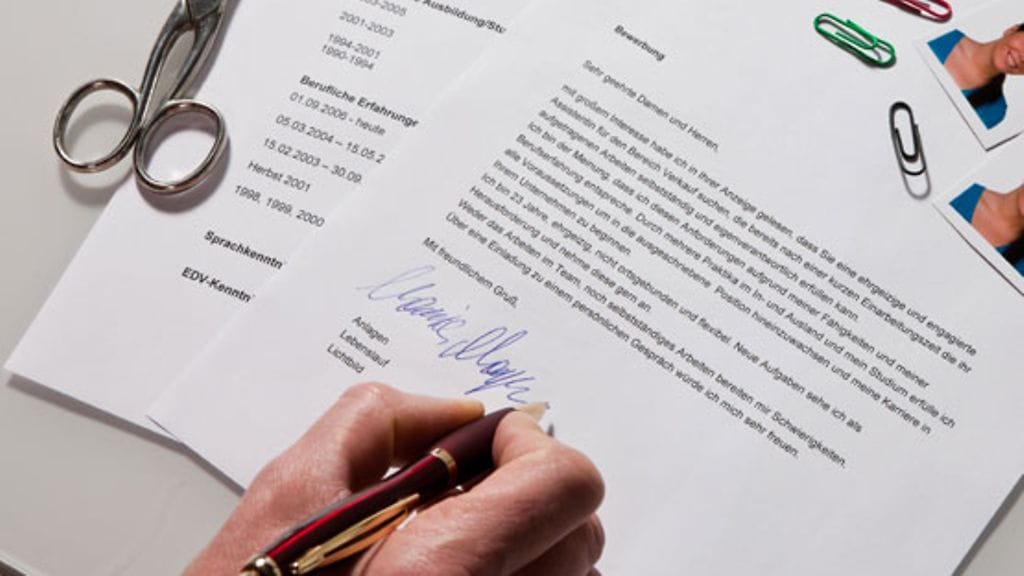 Ausbildung/Stu
03-2005
2001-2003
1994-2001
1990-1994
Berufliche Erfahrunge
01.09.2006 - heute
05.03.2004 – 15.05.2
15.02.2003 – 30.09.
Herbst 2001
1998, 1999, 2000
Sprachkenntn
EDV-Kenntni
Bewerbung
Sehr geehrte Damen und Herren,
mit großem Interesse habe ich in Ihrer Anzeige gelesen, dass Sie eine ehrgeizige und engagierte
Assistentin für den Bereich Verkauf suchen, die bereits nach einer kurzen Einarbeitungszeit die ihr
aufgetragenen Arbeiten selbstständig und eigenverantwortlich erfüllen kann.
Ich bin der Meinung, dass ich diesen Anforderungen aufgrund meiner Fähigkeiten und meiner
Berufserfahrung entspreche. Durch mehrere Praktika im In- und Ausland und mein Studium erfülle ich
alle Voraussetzungen um in die ausgeschriebene Position hineinzuwachsen und meine Karriere in
Ihrem Unternehmen zu beginnen.
Ich bin 23 Jahre, ehrgeizig, nicht ortsgebunden und flexibel. Neue Aufgaben sehe ich als
Herausforderung und nehme diese gern an.
Weder das Arbeiten im Team, noch selbstständiges Arbeiten bereiten mir Schwierigkeiten.
Über eine Einladung zu einem persönlichen Gespräch würde ich mich sehr freuen.
Mit freundlichen Gruß,
Anlagen
Lebenslauf
Lichtbild